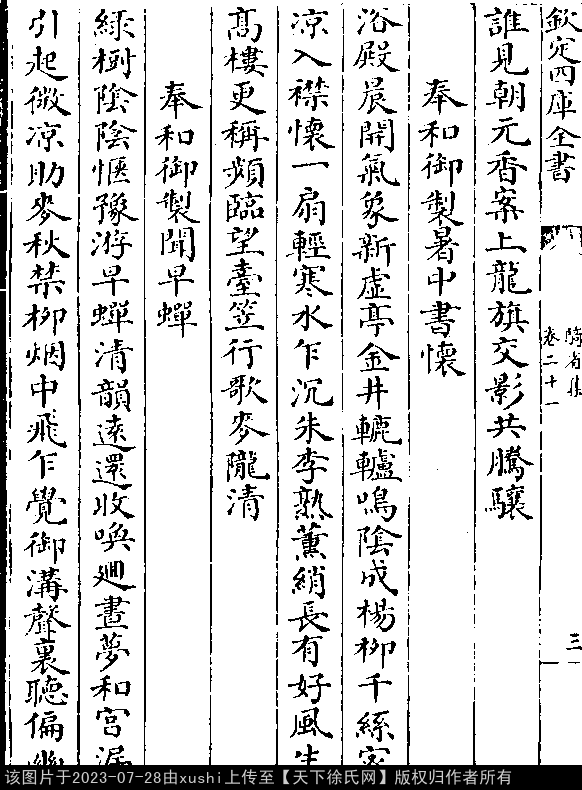 欽定四庫全書
卷二十一
三
誰見朝元香案上龍旗交影共騰驤
奉和御製暑中書懷
浴殿晨開氣象新虛亭金井轆轤鳴陰成楊柳千絲
凉入襟懷一扇輕寒水乍沉朱李熟薰綃長有好風生
髙樓更稱頻臨望臺笠行歌麥隴清
奉和御製聞早蟬
綠樹陰陰愜豫游早蟬清韻遠還收喚廻晝夢和宮漏
引起微凉助麥秋禁柳烟中飛乍覺御溝聲裏聽偏幽
该图片于2023-07-28由xushi上传至【天下徐氏网】版权归作者所有